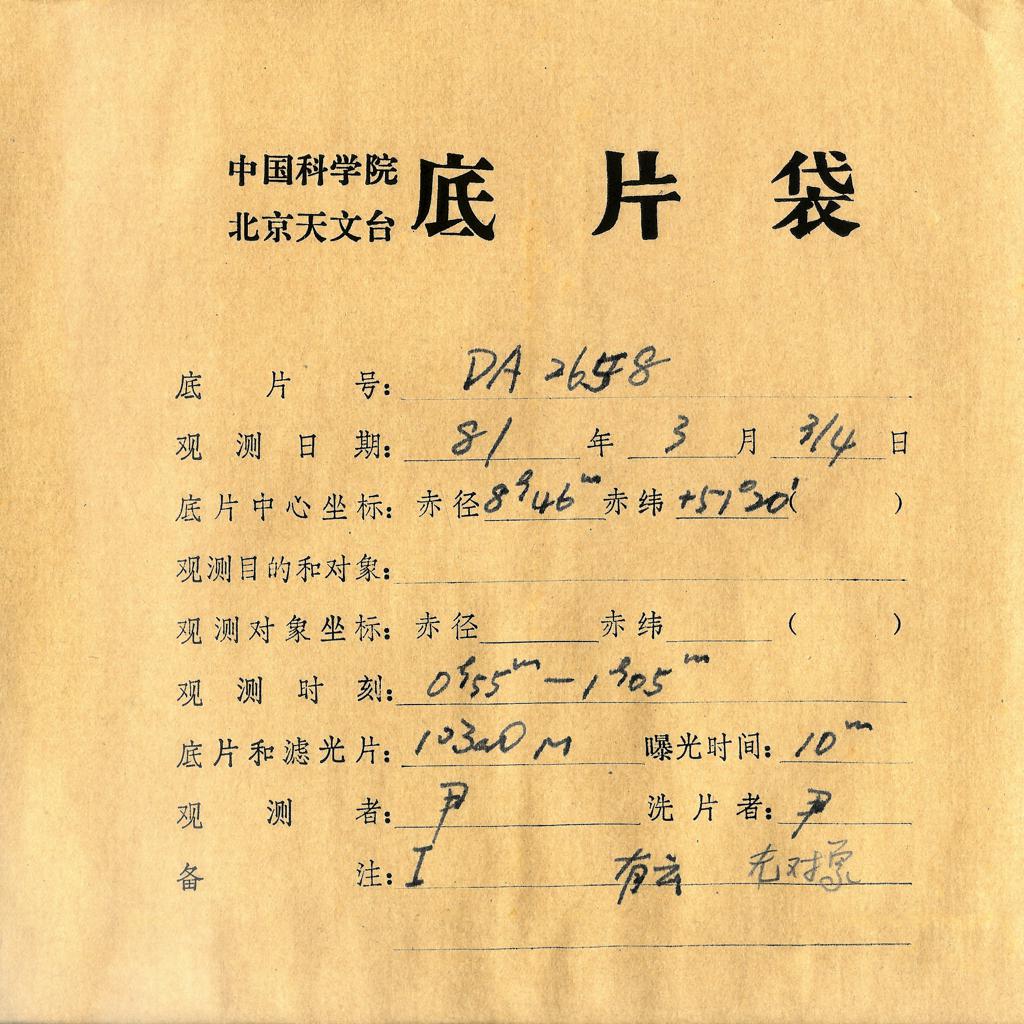 中国科学院
北京天文台
底片袋
底片号: DA 2658
观测日期: 81 年 3 月 3/4 日
底片中心坐标: 赤径 8h46m 赤纬 +51°20′ ( )
观测目的和对象:
观测对象坐标: 赤径 赤纬 ( )
观测时刻: 0h55m — 1h05m
底片和滤光片: 103aO M 曝光时间: 10m
观测者: 尹 洗片者: 尹
备注: I 有云 无对象